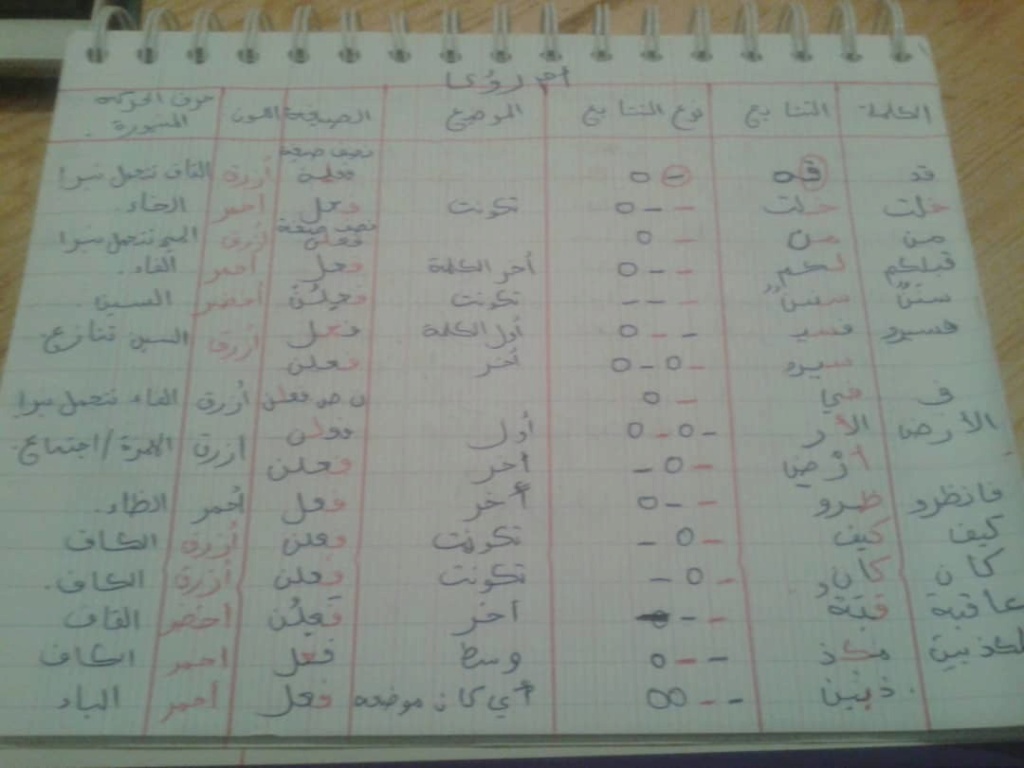 الكلمة التتابع نوع التتابع الموضع الصيغة اللون حرف الحركة
قد قد - o نصف صيغة فعلن أزرق القاف تتحمل نبرا
خلت خلت - - o تكونت فعل احمر الخاء
من من - o نصف صيغة فعلن أزرق الميم تتحمل نبرا
قبلكم لكم - - o أخر الكلمة فعل احمر
سننٌ سننٌ - - - تكونت فعلن أخضر السين
فسيرو فسيـ - - o أول الكلمة فعل أزرق السين تتازع
سيرو - o - o أخر فعلن
ف في - o ن ص فعلن أزرق الفاء تتحمل نبرا
الأرض الأر - o - o أول فعلن أزرق الهمزة / اجتماع
أرْض - o - أخر فعلن
فانظرو ظرو - - o أخر فعل أحمر الظاء
كيف كيف - o - تكونت فعلن أزرق الكاف
كان كان - o - تكونت فعلن أزرق الكاف
عاقبة قبة - - أخر فعلن اخضر القاف
لكذبين مكذ - - o وسط فعل احمر الكاف
ذبين - - oo أي كان موضعه فعل احمر الباء